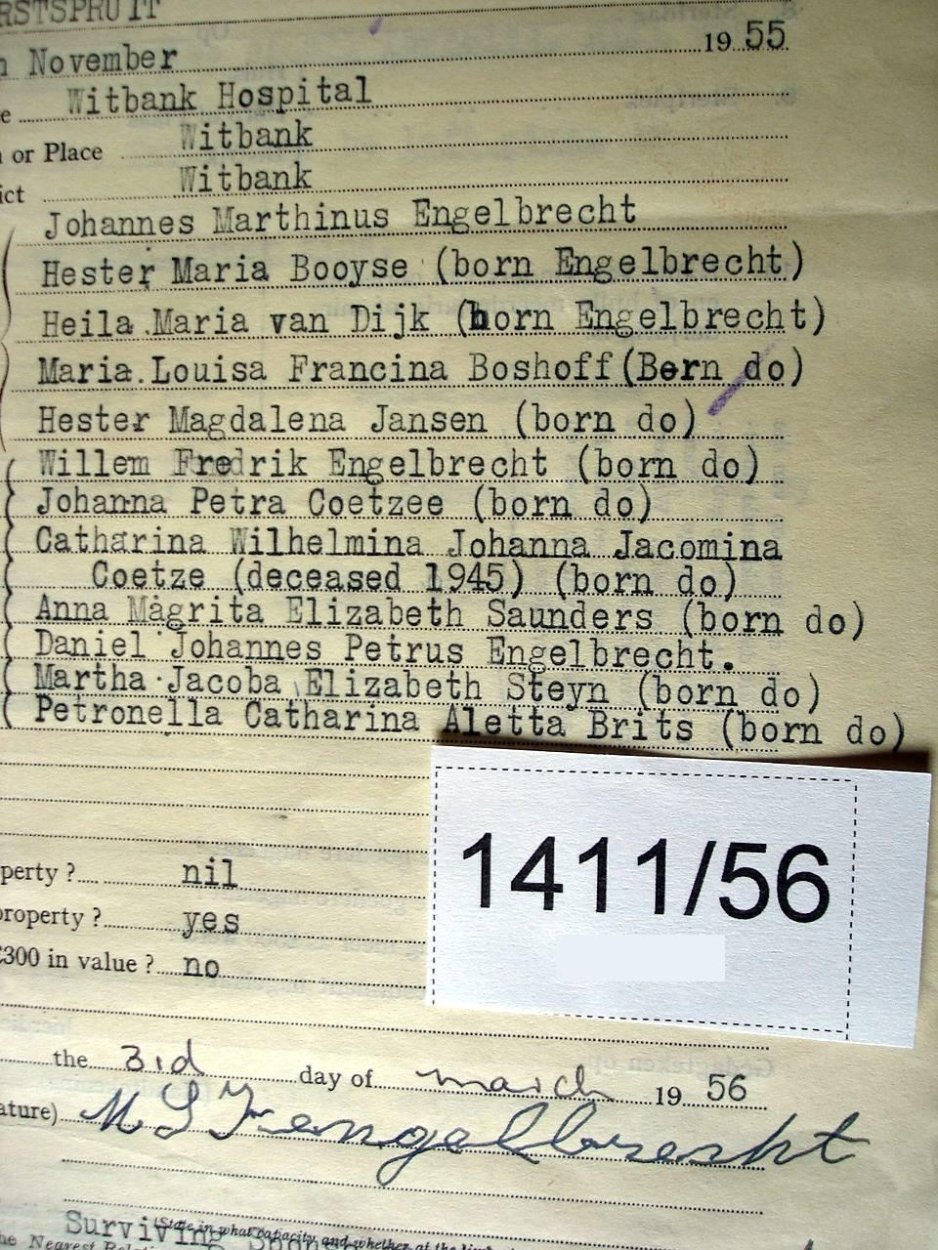 RSTSPRUIT
November 19 55
Witbank Hospital
or Place Witbank
ict Witbank
Johannes Marthinus Engelbrecht
Hester Maria Booyse (born Engelbrecht)
Heila Maria van Dijk (born Engelbrecht)
Maria Louisa Francina Boshoff (Born do)
Hester Magdalena Jansen (born do)
Willem Fredrik Engelbrecht (born do)
Johanna Petra Coetzee (born do)
Catharina Wilhelmina Johanna Jacomina
Coetze (deceased 1945) (born do)
Anna Magrita Elizabeth Saunders (born do)
Daniel Johannes Petrus Engelbrecht.
Martha Jacoba Elizabeth Steyn (born do)
Petronella Catharina Aletta Brits (born do)
1411/56
perty ? nil
property ? yes
£300 in value ? no
the 3rd day of march 19 56
ature) M L F engelbrecht
Surviving Spouse
(State in what capacity and whether at the
he Nearest